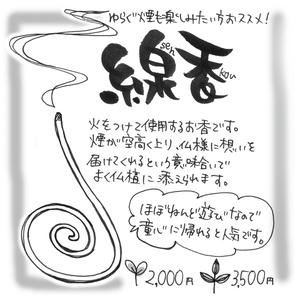 ゆらぐ煙も楽しみたい方おススメ!
線香
sen
kou
火をつけて使用するお香です。
煙が空高く上り、仏様に想いを
届けてくれるという意味合いで
よく仏壇に添えられます。
ほぼ"ねんど遊び"なので
童心に帰れると人気です。
2,000円 3,500円